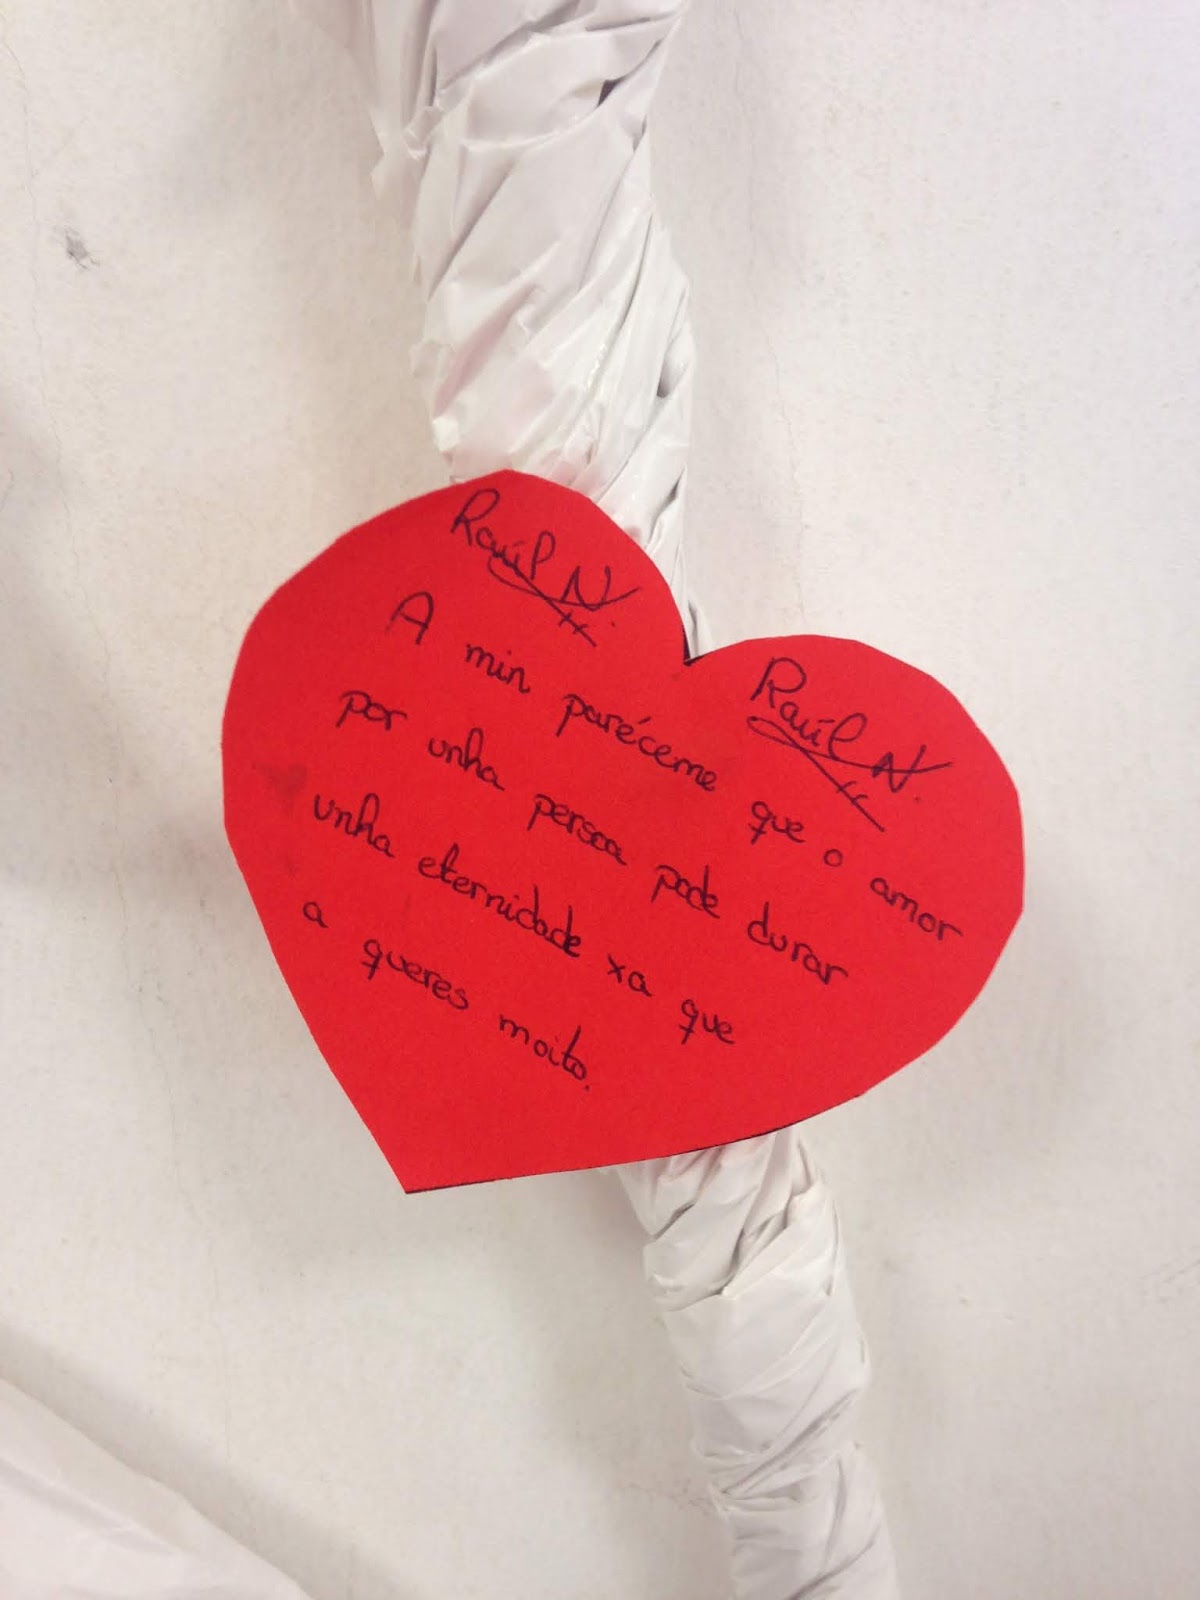 Raúl N.
Raúl N.
A min paréceme que o amor
por unha persoa pode durar
unha eternidade xa que
a queres moito.